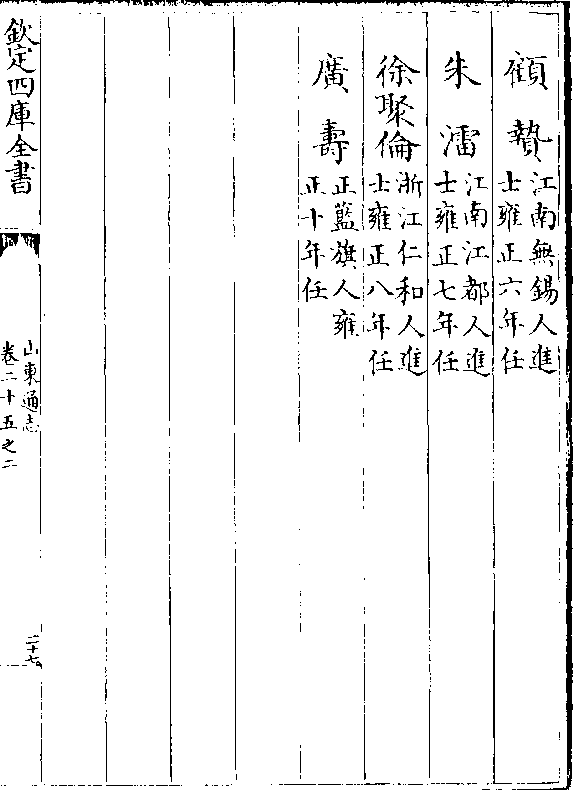 顧贄江南無錫人進
士雍正六年任
朱澑江南江都人進
士雍正七年任
徐聚倫浙江仁和人進
士雍正八年任
廣壽正藍旗人雍
正十年任
欽定四庫全書
山東通志
卷二十五之二
二十七